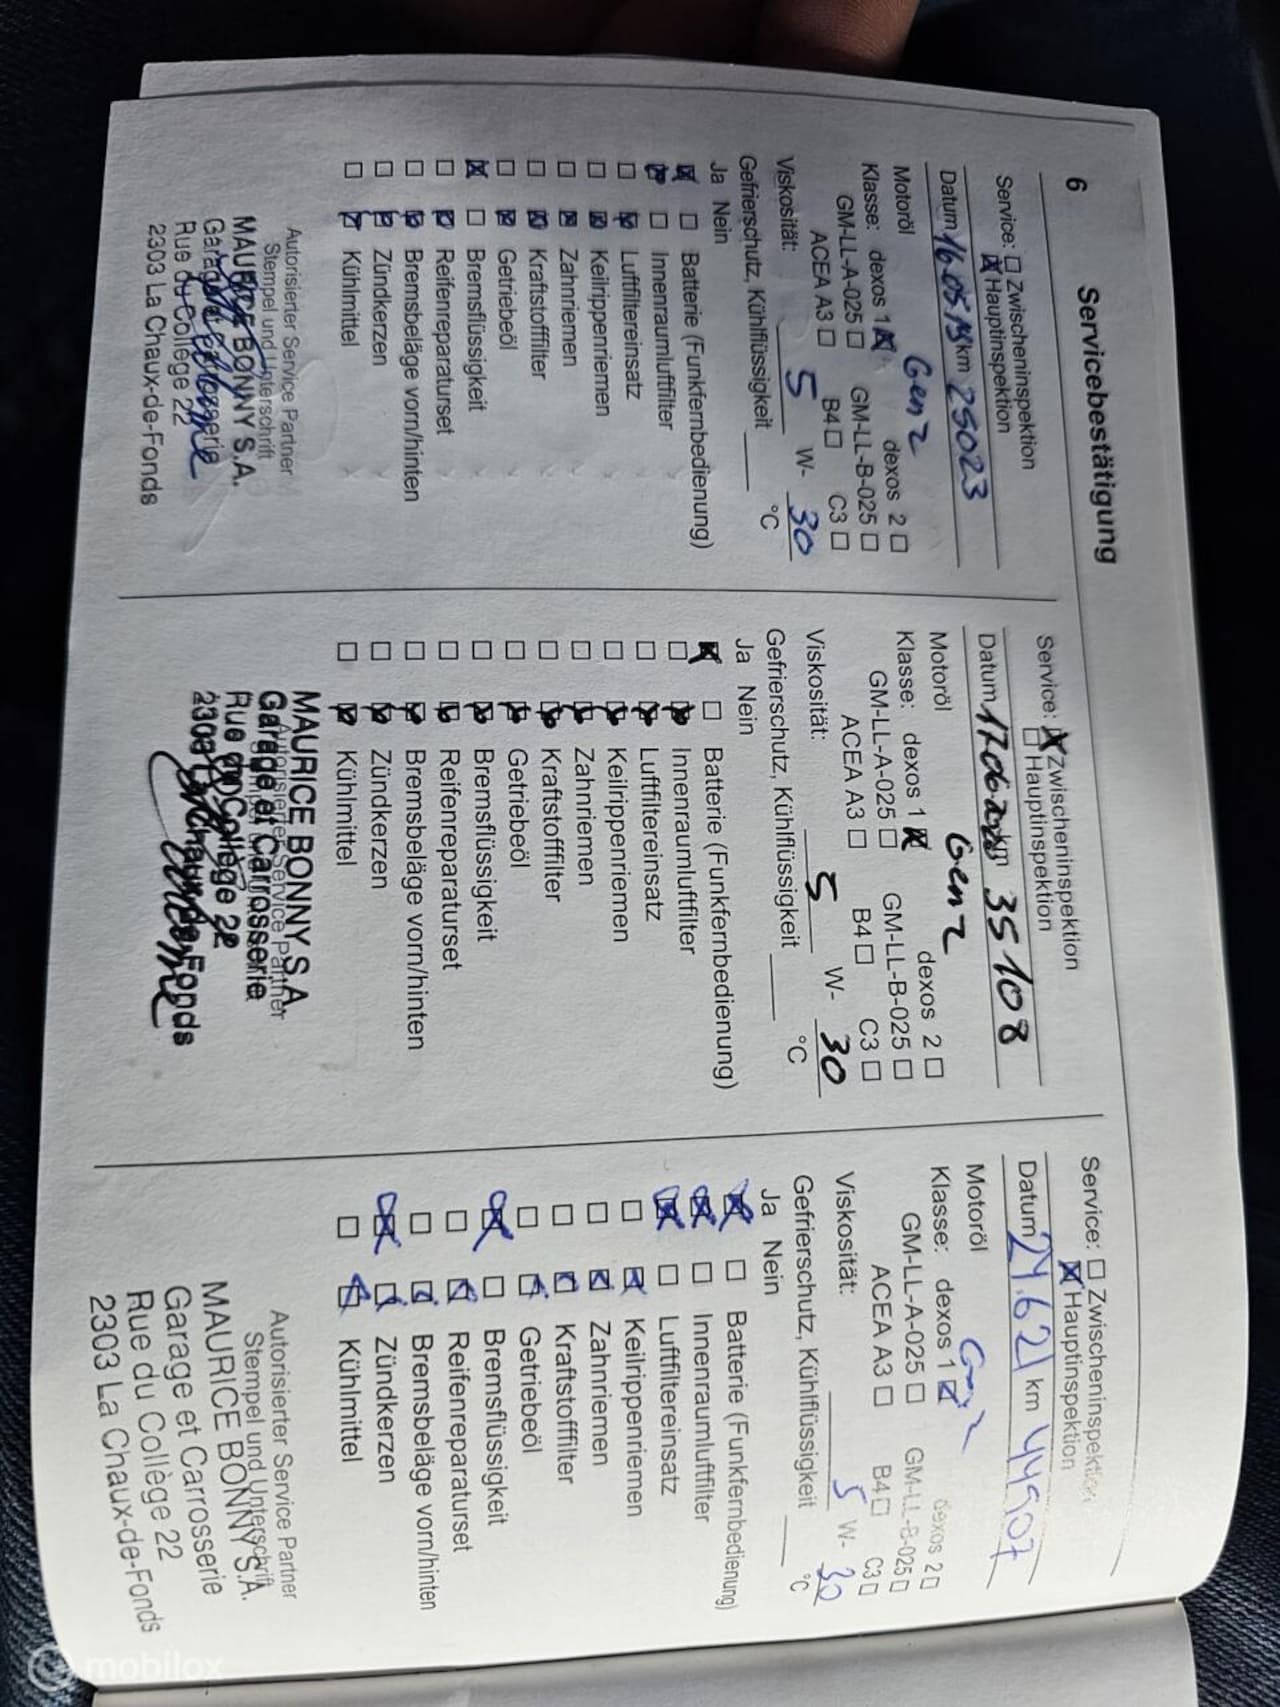 6 Servicebestätigung
Service: Zwischeninspektion
Hauptinspektion
Datum 16.05.19 km 25023
Motoröl Gen 2
Klasse: dexos 1 dexos 2
GM-LL-A-025 GM-LL-B-025
ACEA A3 B4 C3
Viskosität: 5 W- 30
Gefrierschutz, Kühlflüssigkeit °C
Ja Nein
Batterie (Funkfernbedienung)
Innenraumluftfilter
Luftfiltereinsatz
Keilrippenriemen
Zahnriemen
Kraftstofffilter
Getriebeöl
Bremsflüssigkeit
Reifenreparaturset
Bremsbeläge vorn/hinten
Zündkerzen
Kühlmittel
Autorisierter Service Partner
Stempel und Unterschrift
MAURICE BONNY S.A.
Garage et Carrosserie
Rue du Collège 22
2303 La Chaux-de-Fonds
Service: Zwischeninspektion
Hauptinspektion
Datum km 35108
Motoröl Gen 2
Klasse: dexos 1 dexos 2
GM-LL-A-025 GM-LL-B-025
ACEA A3 B4 C3
Viskosität: 5 W- 30
Gefrierschutz, Kühlflüssigkeit °C
Ja Nein
Batterie (Funkfernbedienung)
Innenraumluftfilter
Luftfiltereinsatz
Keilrippenriemen
Zahnriemen
Kraftstofffilter
Getriebeöl
Bremsflüssigkeit
Reifenreparaturset
Bremsbeläge vorn/hinten
Zündkerzen
Kühlmittel
Autorisierter Service Partner
MAURICE BONNY S.A.
Garage et Carrosserie
Rue du Collège 22
2303 La Chaux-de-Fonds
Service: Zwischeninspektion
Hauptinspektion
Datum 24.6.21 km 44907
Motoröl Gen 2
Klasse: dexos 1 dexos 2
GM-LL-A-025 GM-LL-B-025
ACEA A3 B4 C3
Viskosität: 5 W- 30
Gefrierschutz, Kühlflüssigkeit °C
Ja Nein
Batterie (Funkfernbedienung)
Innenraumluftfilter
Luftfiltereinsatz
Keilrippenriemen
Zahnriemen
Kraftstofffilter
Getriebeöl
Bremsflüssigkeit
Reifenreparaturset
Bremsbeläge vorn/hinten
Zündkerzen
Kühlmittel
Autorisierter Service Partner
Stempel und Unterschrift
MAURICE BONNY S.A.
Garage et Carrosserie
Rue du Collège 22
2303 La Chaux-de-Fonds
mobilox